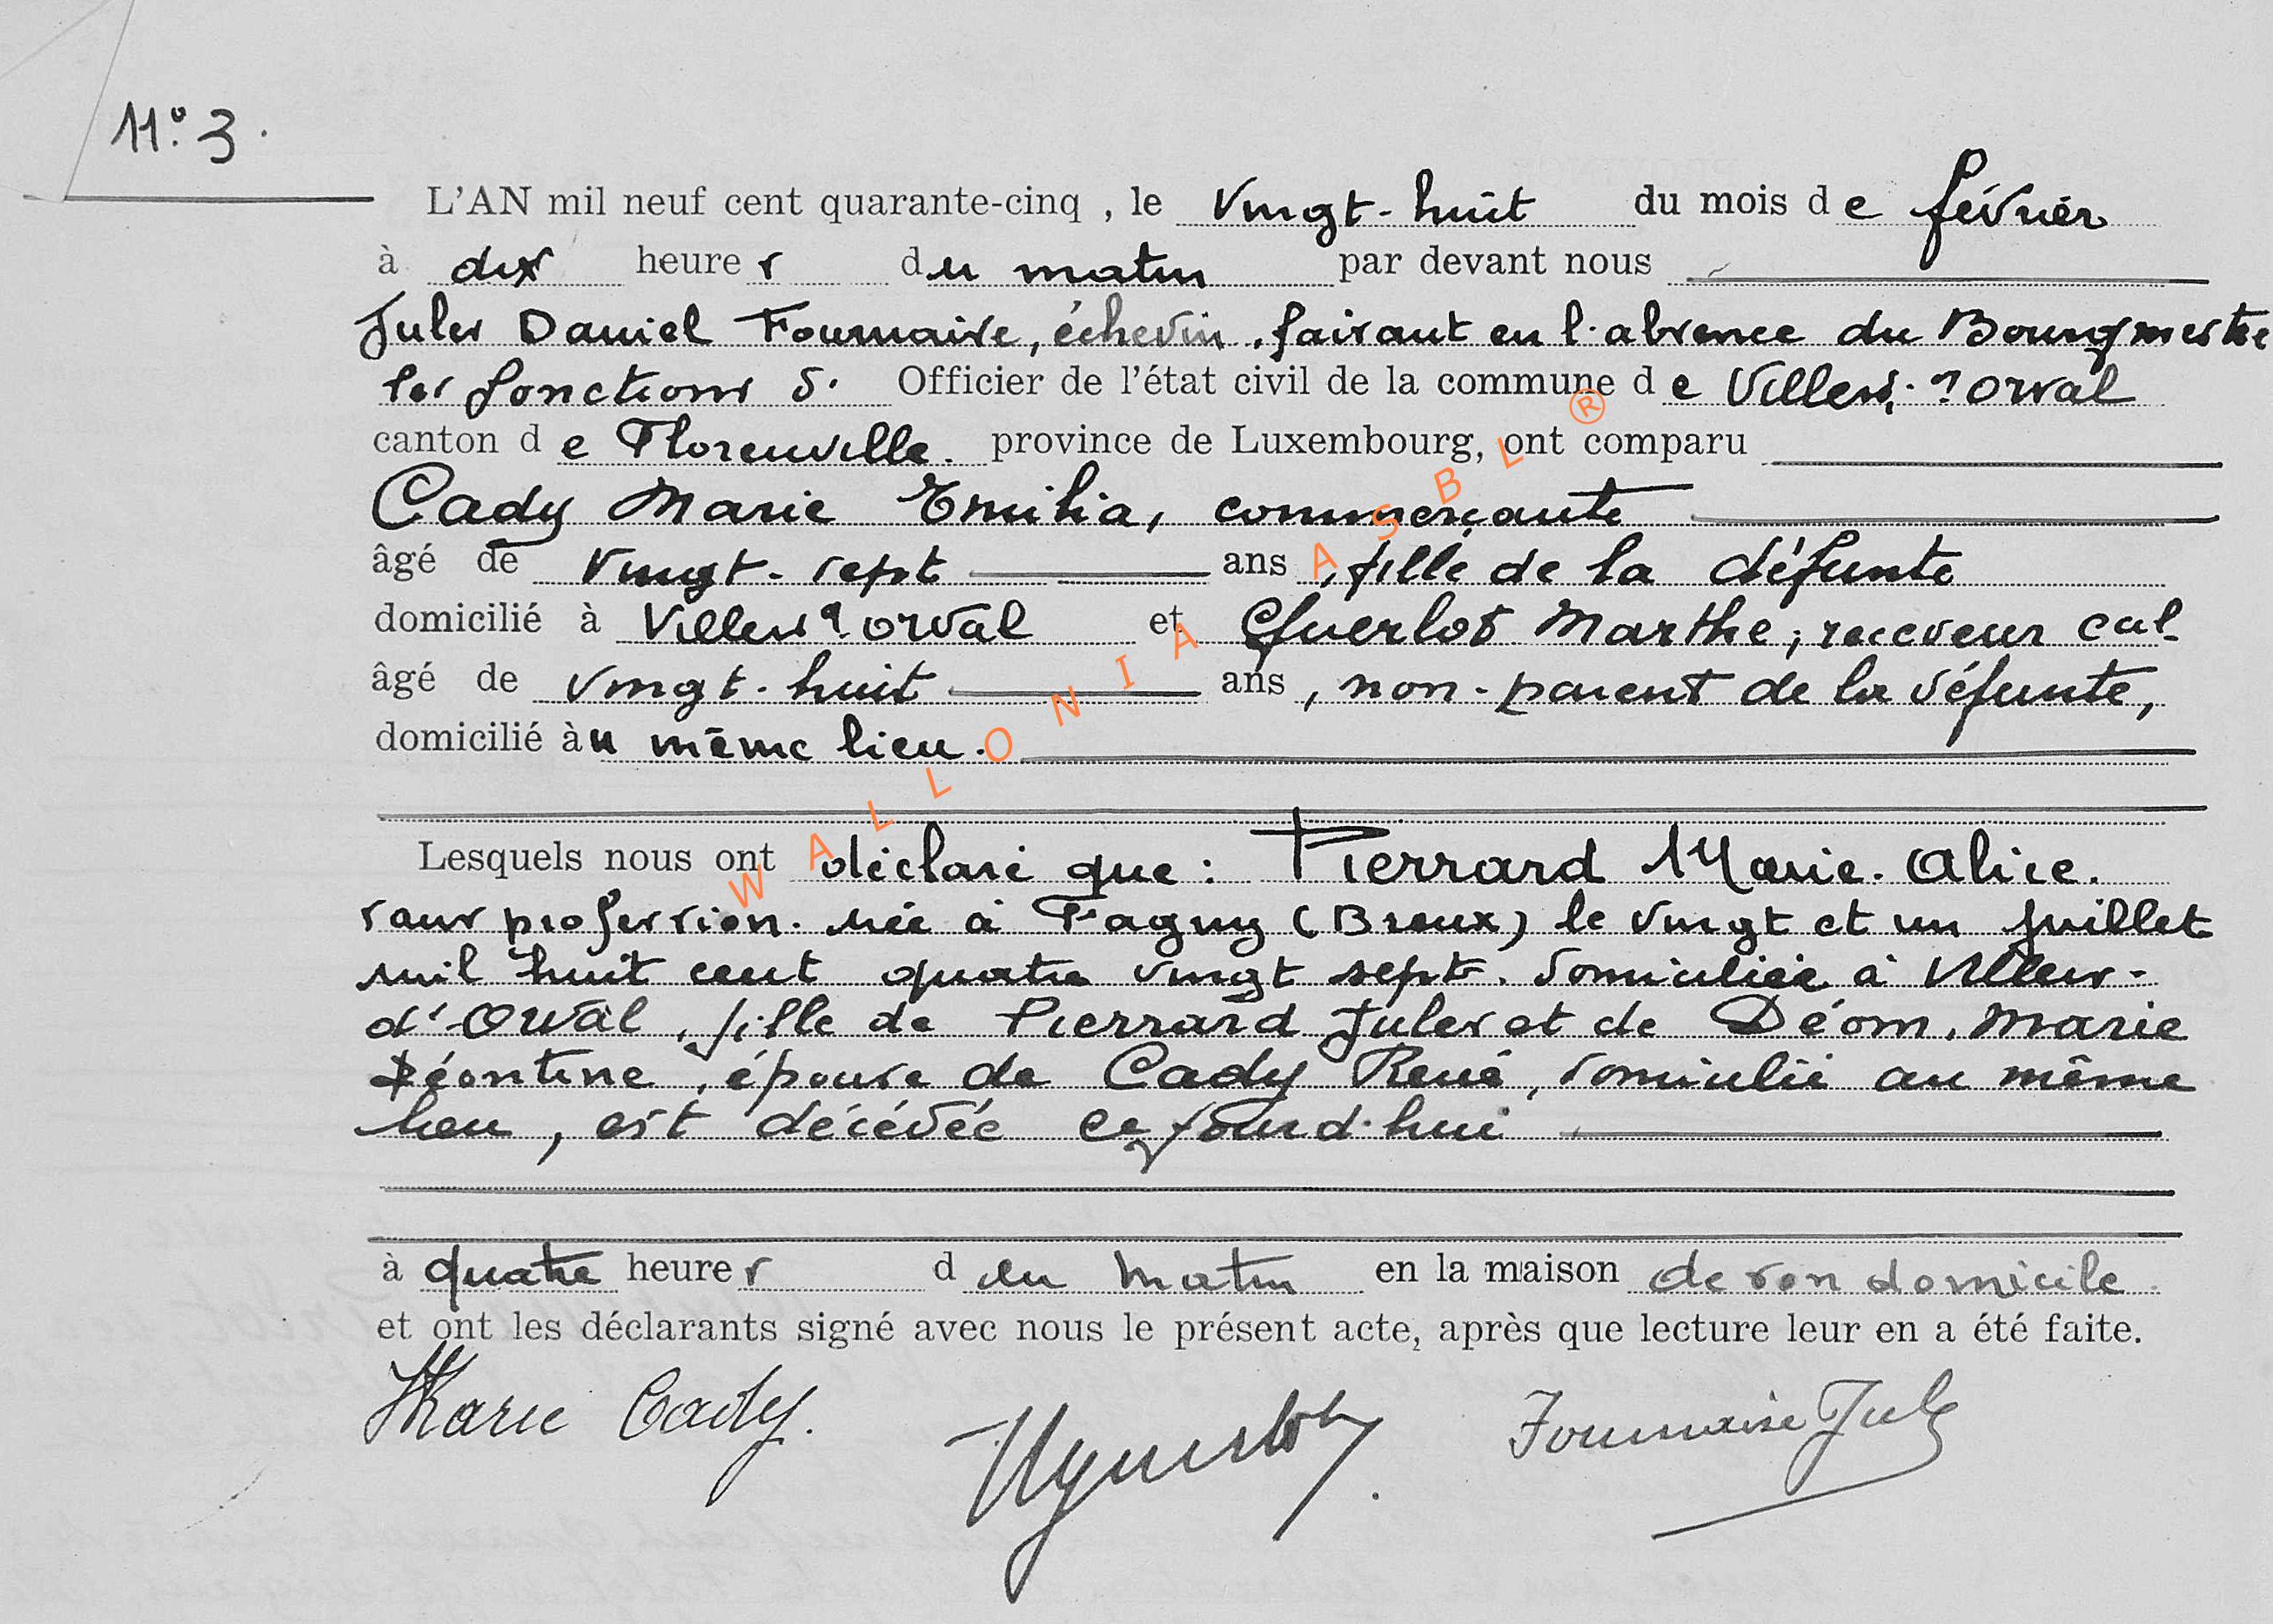 N° 3.
L'AN mil neuf cent quarante-cinq , le vingt-huit du mois de février
à dix heures du matin par devant nous
Jules Daniel Fournaise, échevin, faisant en l'absence du Bourgmestre
les fonctions d' Officier de l'état civil de la commune de Villers-d'Orval
canton de Florenville. province de Luxembourg, ont comparu
Cady Marie Emilia, commerçante
âgé de vingt-sept ans, fille de la défunte
domicilié à Villers d'Orval et Guerlot Marthe, receveur cul-
âgé de vingt-huit ans, non-parent de la défunte,
domicilié àu même lieu.
Lesquels nous ont déclaré que : Pierrard Marie-Alice.
sans profession. née à Fagny (Breux) le vingt et un juillet
mil huit cent quatre vingt sept. domiciliée à Villers-
d'Orval, fille de Pierrard Jules et de Déom, Marie
Léontine, épouse de Cady René, domicilié au même
lieu, est décédée ce jourd'hui
à quatre heures du matin en la maison de son domicile
et ont les déclarants signé avec nous le présent acte, après que lecture leur en a été faite.
Marie Cady. Fournaise Jules
WALLONIA ASBL ®